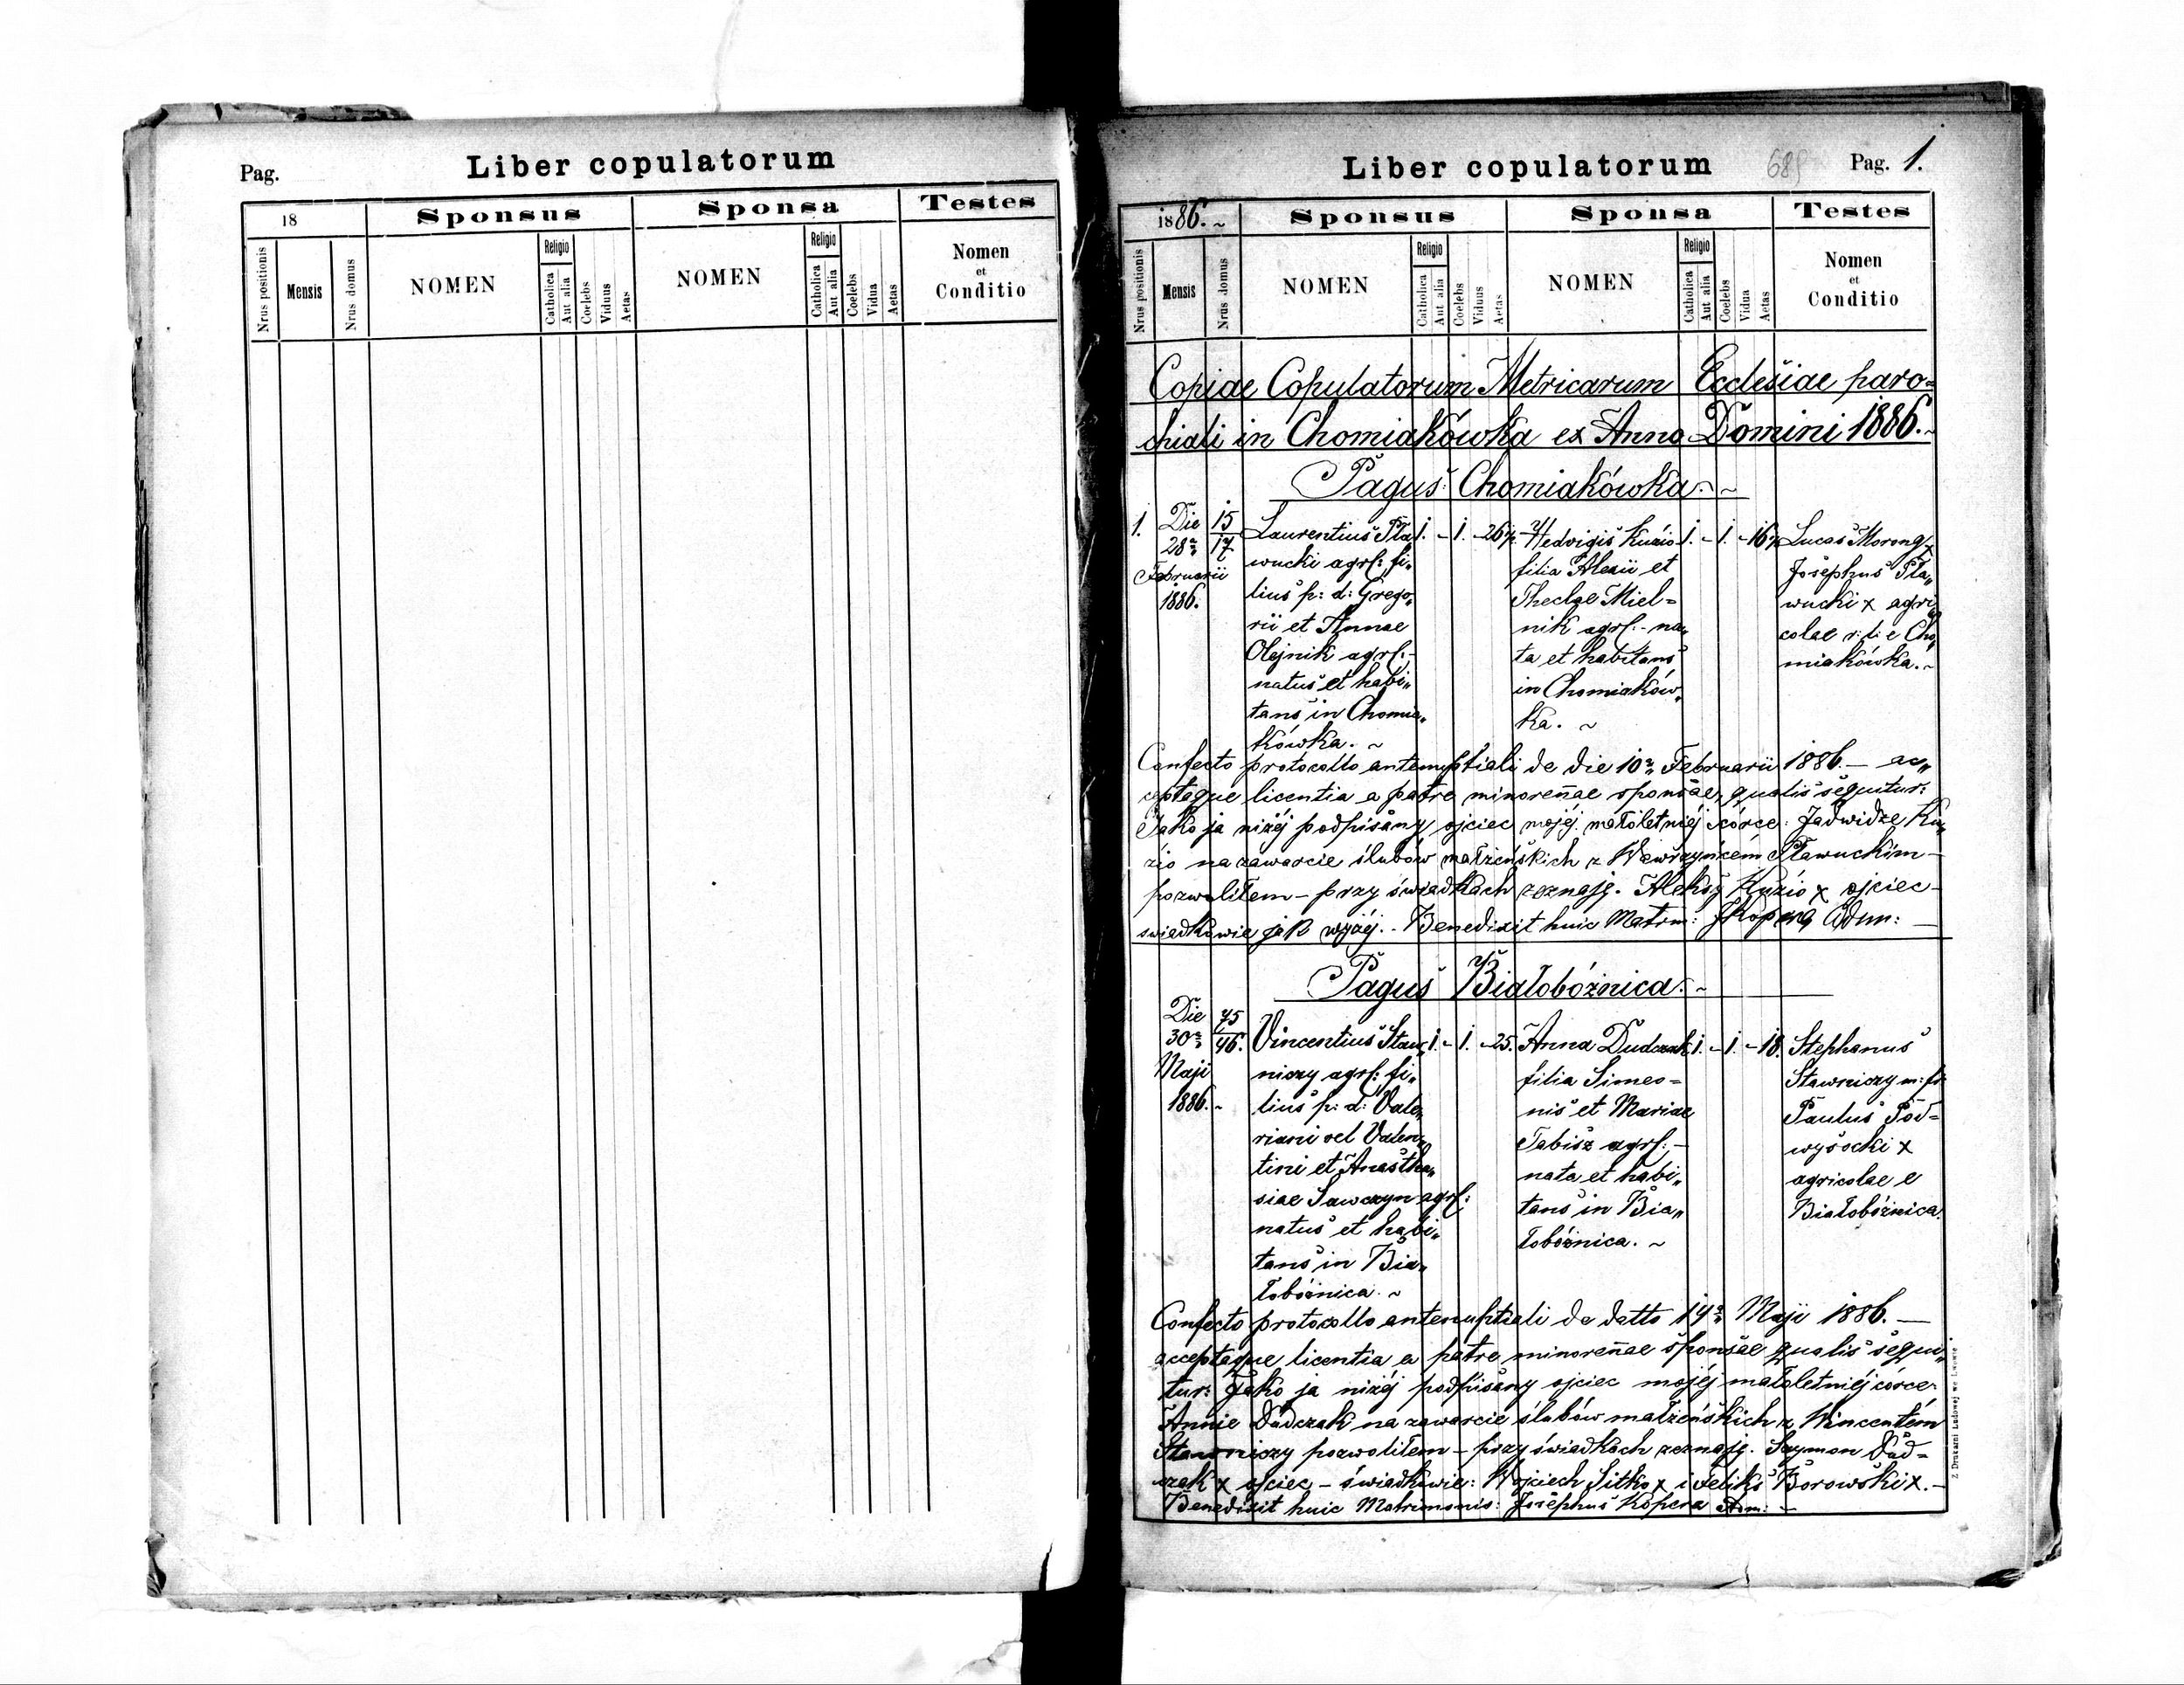 Pag.
Liber copulatorum
18
Sponsus
Sponsa
Testes
Nrus positionis
Mensis
Nrus domus
NOMEN
Religio
Catholica
Aut alia
Coelebs
Viduus
Aetas
NOMEN
Religio
Catholica
Aut alia
Coelebs
Vidua
Aetas
Nomen
et
Conditio
Liber copulatorum
689
Pag. 1.
1886. ~
Sponsus
Sponsa
Testes
Nrus positionis
Mensis
Nrus domus
NOMEN
Religio
Catholica
Aut alia
Coelebs
Viduus
Aetas
NOMEN
Religio
Catholica
Aut alia
Coelebs
Vidua
Aetas
Nomen
et
Conditio
Copiae Copulatorum Metricarum Ecclesiae paro=
chiali in Chomiakówka ex Anno Domini 1886. ~
Pagus: Chomiakówka. ~
1.
Die
28a
Februarii
1886.
15
17
Laurentius Pła„
wucki agrl: fi„
lius p: d: Grego„
rii et Annae
Olejnik agrl: -
natus et habi„
tans in Chomia„
kówka. ~
1. - 1. - 26
Hedvigis Kuzio
filia Alexii et
Theclae Miel=
nik agrl: - na„
ta et habitans
in Chomiaków„
ka. ~
1. - 1. - 16
Lucas Morong x
Josephus Pła„
wucki x agri„
colae r: l: e Cho„
miakówka. ~
Confecto protocollo antenuptiali de die 10a Februarii 1886. - ac„
ceptaque licentia a patre minorenae sponsae, qualis sequitur:
Jako ja niżéj podpisany ojciec mojéj małoletniéj córce: Jadwidze Ku„
zio na zawarcie ślubów małżeńskich z Wawrzyńcem Pławuckim -
pozwoliłem - przy świadkach zeznaję. Aleksy Kuzio x ojciec -
swiadkowie jak wyżéj. - Benedixit huic Matrm: J Kopera Adm: -
Pagus Białobóżnica. ~
Die
30a
Maji
1886. ~
75
46.
Vincentius Staw„
niczy agrl: fi„
lius p: d: Vale„
riani vel Valen„
tini et Anastha„
siae Sawczyn agrl:
natus et habi„
tans in Bia„
łobóżnica. ~
1. - 1. - 25.
Anna Dudczak
filia Simeo=
nis et Mariae
Tabisz agrl: -
nata et habi„
tans in Bia„
łobóżnica. ~
1. - 1. - 18.
Stephanus
Stawniczy
Paulus Pod=
wysocki x
agricolae e
Białobóżnica.
Confecto protocollo antenuptiali de datto 14a Maji 1886. -
acceptaque licentia a patre minorenae sponsae qualis sequi„
tur: Jako ja niżéj podpisany ojciec mojéj małoletniéj córce
Annie Dudczak na zawarcie ślubów małżeńskich z Wincentém
Stawniczy pozwoliłem - przy świadkach zeznaję. Szymon Dud=
czak x ojciec - świadkowie: Wojciech Sitko x i Feliks Borowski x. -
Benedixit huic Matrimonio: Josephus Kopera Adm: -
Z Drukarni Ludowej we Lwowie.